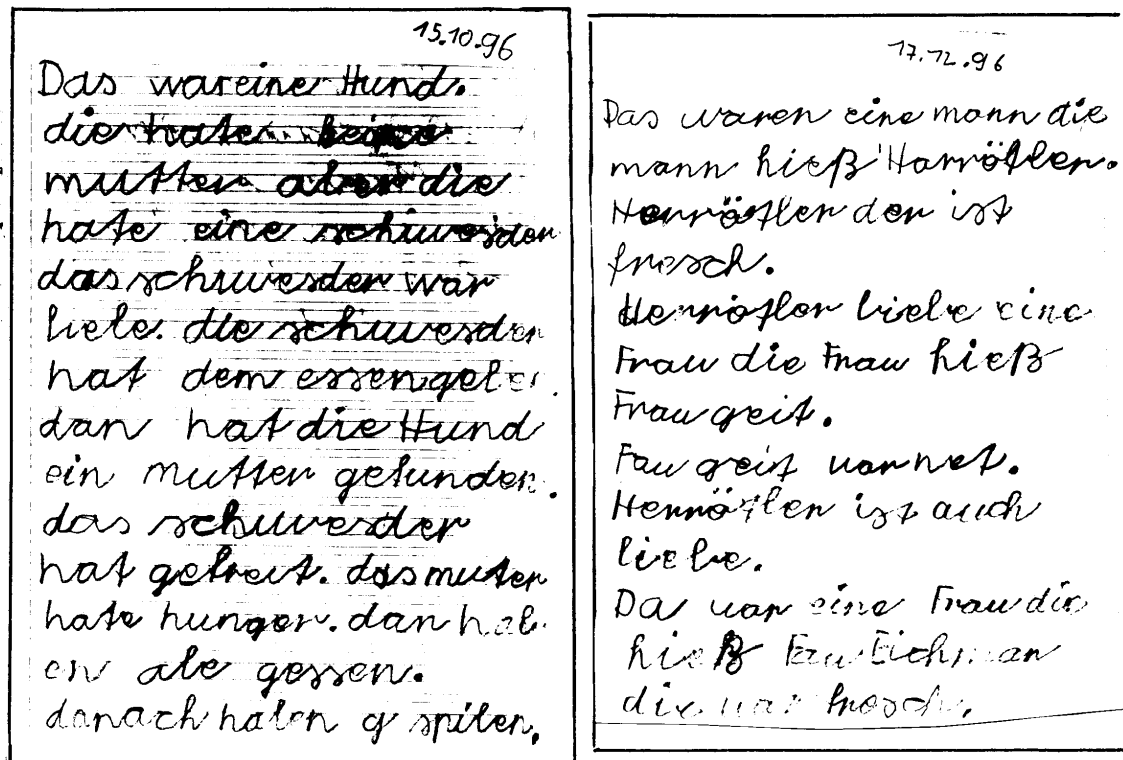 15.10.96
Das wareine Hund.
die hate keine
mutter aber die
hate eine schwesder
das schwesder war
liebe. die schwesder
hat dem essengebe
dan hat die Hund
ein mutter gefunden.
das schwesder
hat gefreut. das muter
hate hunger. dan hab
en ale gessen.
danach haben g spilen.
17.12.96
Das waren eine mann die
mann hieß Harrötler.
Herrötler der ist
fresch.
Herrötler liebe eine
Frau die Frau hieß
Frau geit.
Fau geit war net.
Herrötler ist auch
liebe.
Da war eine Frau die
hieß Frau Eichman
die war frosch.